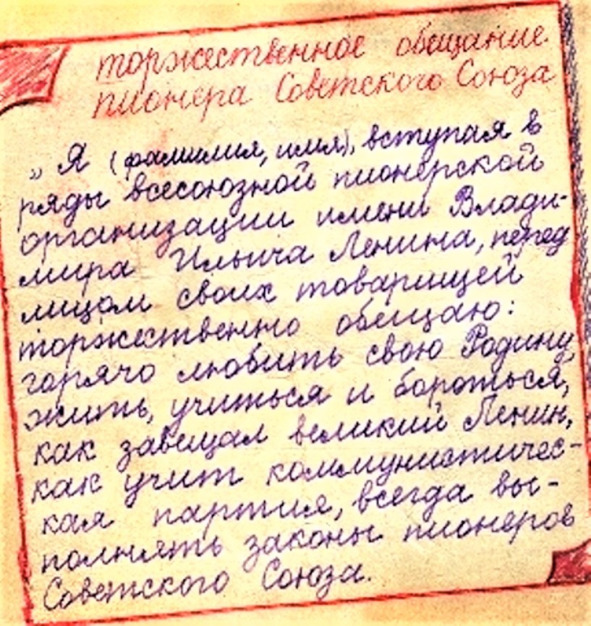 торжественное обещание
пионера Советского Союза
„ Я (фамилия, имя), вступая в
ряды всесоюзной пионерской
организации имени Влади-
мира Ильича Ленина, перед
лицом своих товарищей
торжественно обещаю:
горячо любить свою Родину,
жить, учиться и бороться,
как завещал великий Ленин,
как учит коммунистичес-
кая партия, всегда вы-
полнять законы пионеров
Советского Союза.